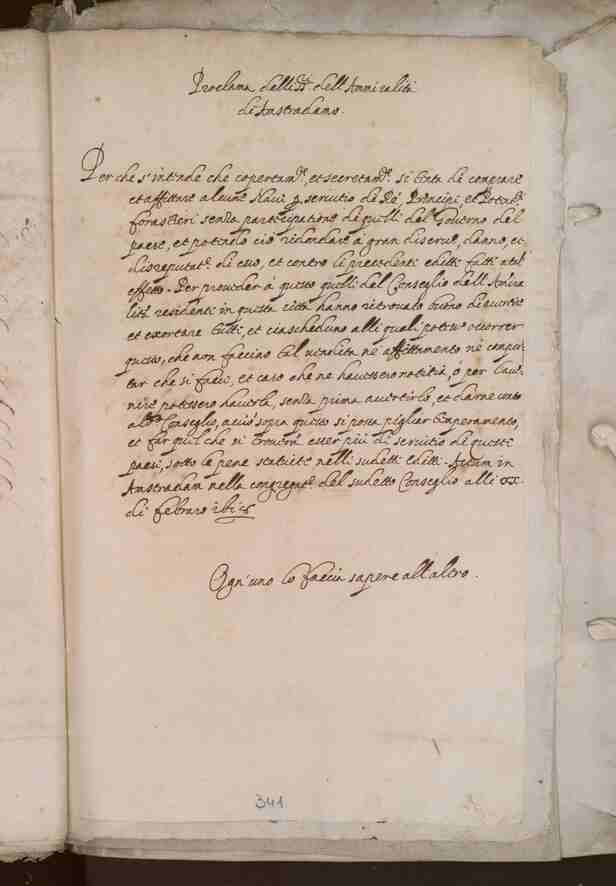 Proclama dalli SSri dell'Amiralità
di Amstradamo.
Per che s'intende che copertamte, et secretamte si tenta de comprare
et affittare alcune Navi p servitio de Ré, Principi, et Potenti
forastieri senza participatione di quelli del Governo del
paese, et potendo ciò ridondare à gran disserve, danno, et
disreputate di esso, et contro li precedenti editti fatti à tal
effetto. Per proveder à questo quelli del Conseglio dell'Amira
lità residenti in questa città hanno ritrovato buono di avertir
et exortare tutti, et ciascheduno alli quali potesse occorrer
questo, che non faccino tal vendita né affittamento né
che si faci, et caso che ne havessero notitia, ò per l'ave-
nire potessero haverla, senza prima avertirlo, et darne
al Conseglio, sopra questo si possa pigliar temperamento,
et far quel che si troverà esser più di servitio di questi
paesi, sotto le pene statuite nelli sudetti editti. Actum in
Amstradam nella congregate del sudetto Conseglio alli
di Febraro
Ogn'uno lo facia sapere all'altro.
341